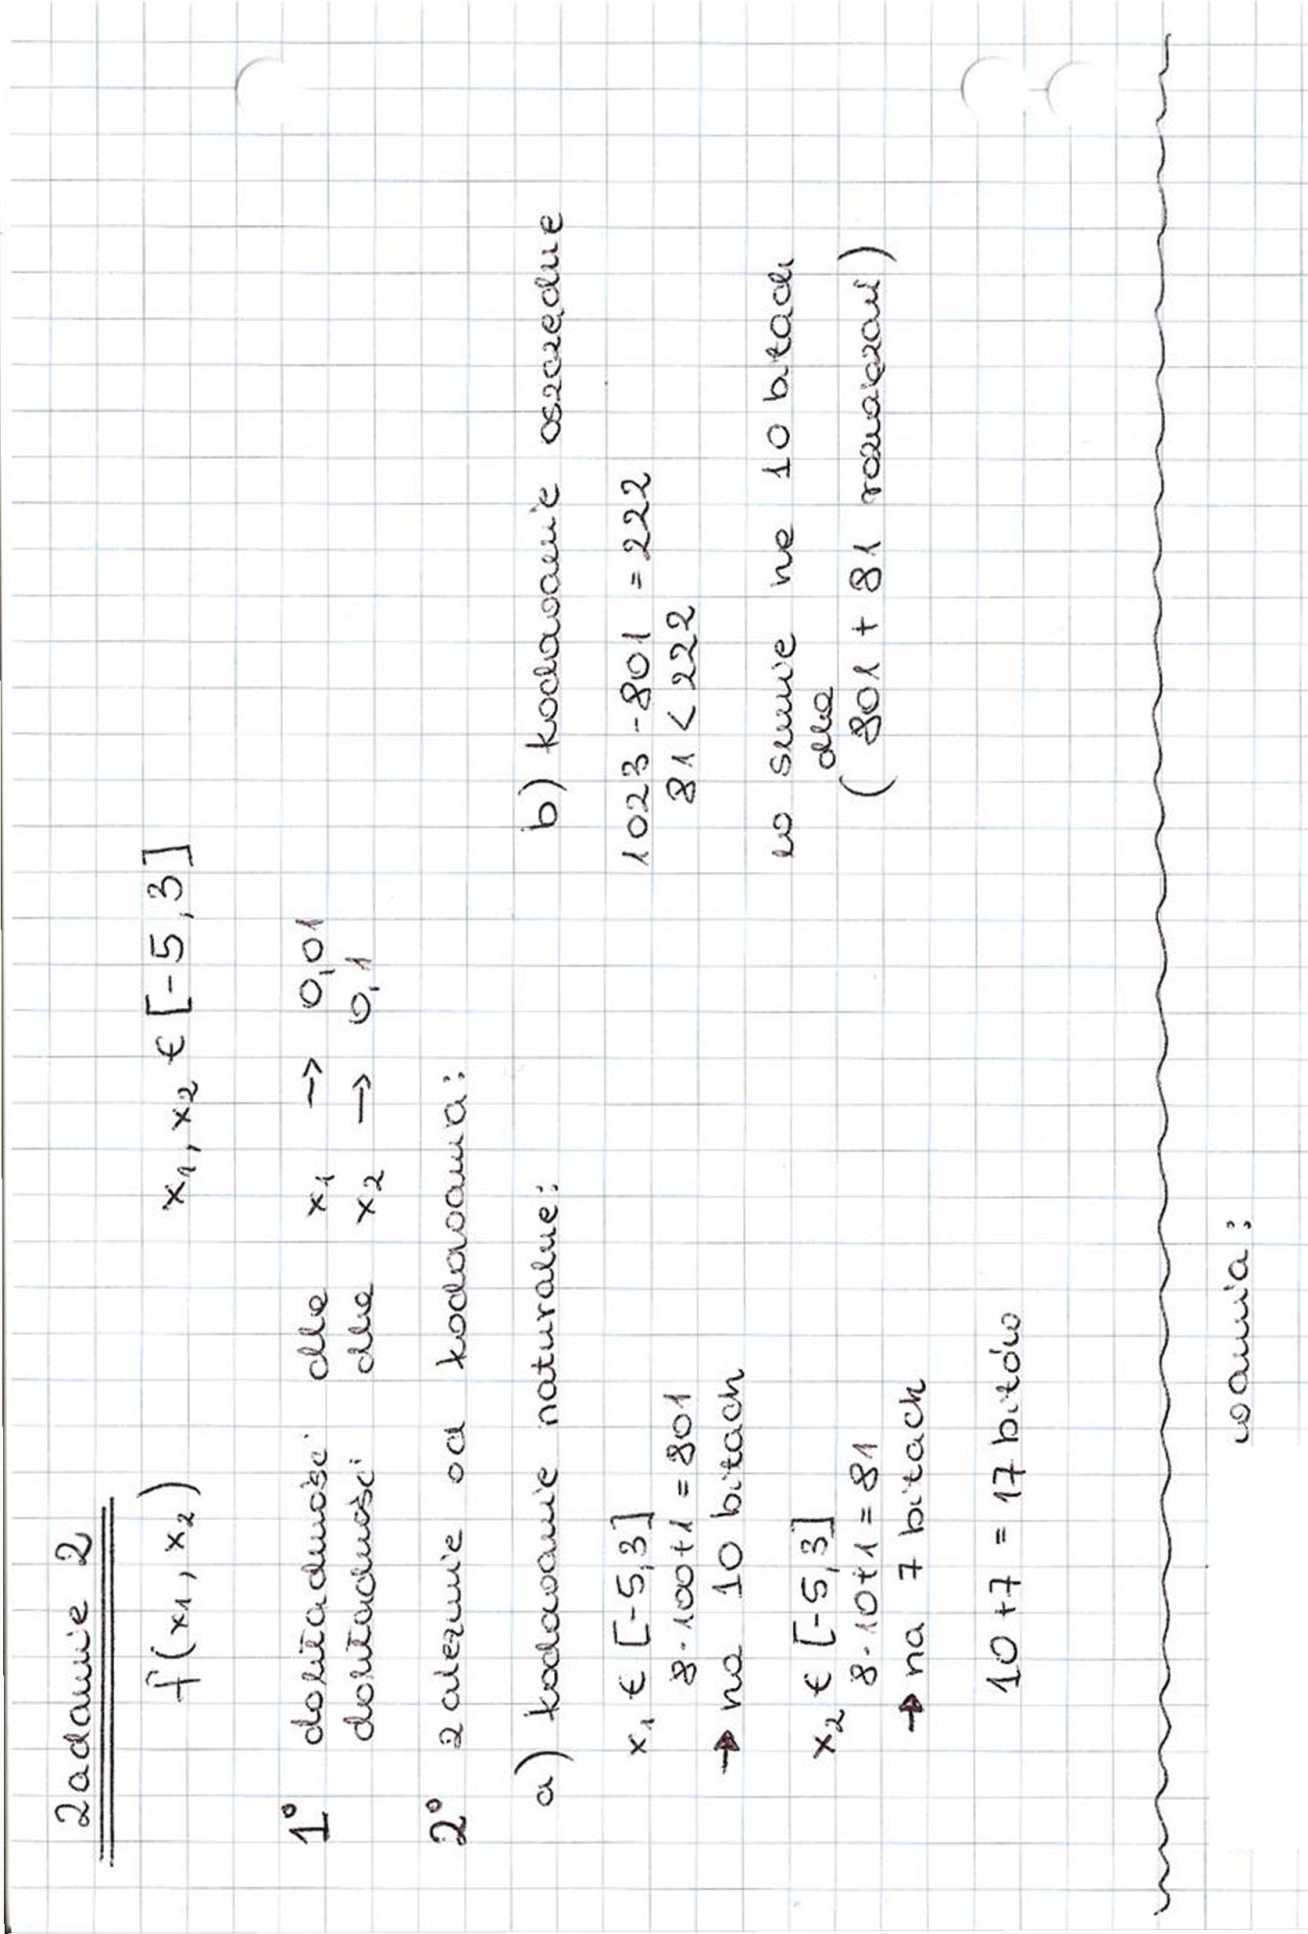 Zadanie 2
f(x1, x2)    x1, x2 ∈ [-5,3]
1° dokładność dla x1 → 0,01
dokładność dla x2 → 0,1
2° zależnie od kodowania:
a) kodowanie naturalne:
x1 ∈ [-5,3]
8·100+1 = 801
→ na 10 bitach
x2 ∈ [-5,3]
8·10+1 = 81
→ na 7 bitach
10+7 = 17 bitów
b) kodowanie oszczędne
1023 - 801 = 222
81 < 222
w sumie na 10 bitach
dla
(801 + 81 rozwiązań)
wania: